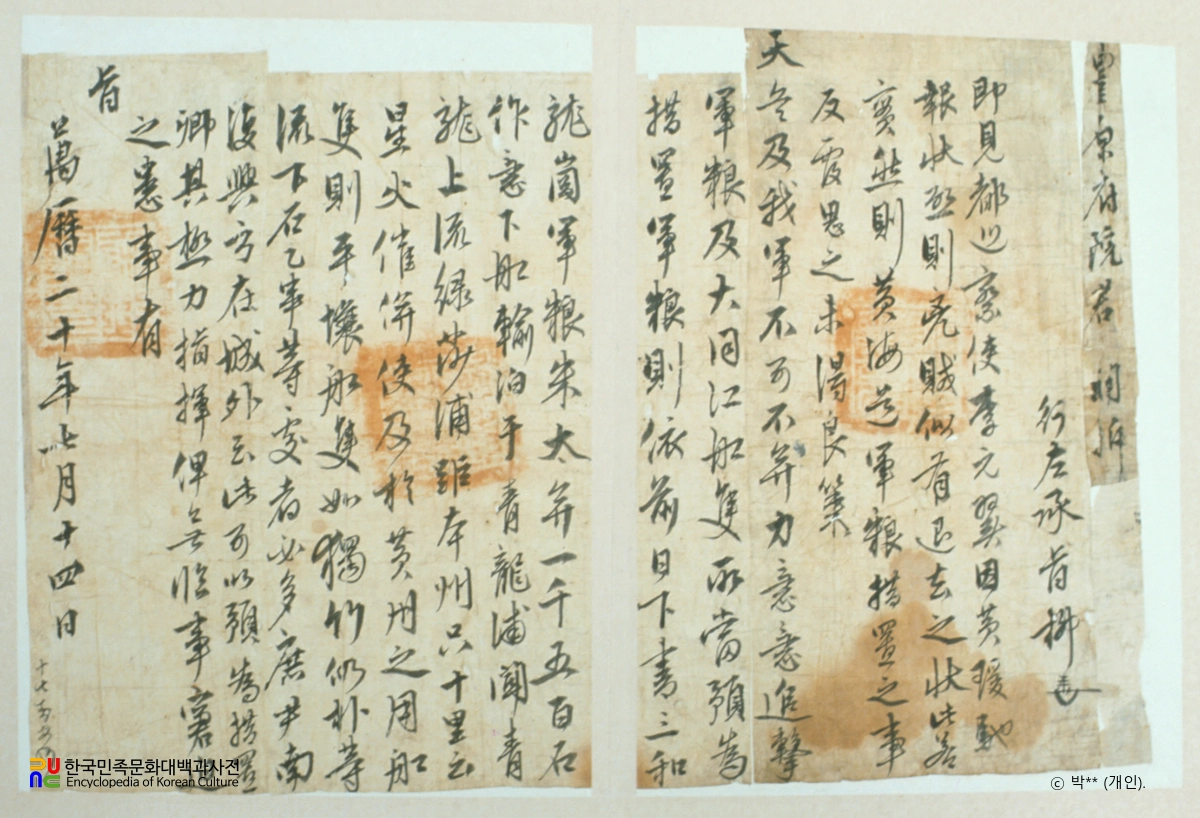 豊原府院君 開拆
行左承旨
即見都巡察使李元翼因黃瑗馳
報狀啓則兇賊似有退去之狀此若
實然則黃海道軍粮措置之事
反覆思之未得良策
天兵及我軍不可不幷力急急追擊
軍粮及大同江船隻所當預爲
措置軍粮則依前日下書三和
龍崗軍粮米太幷一千五百石
作急下船輸泊于青龍浦聞青
龍上流綠莎浦距本州只十里云
星火催併使及於黃州之用船
隻則平壤船隻如獨竹仍朴等
流下石乙串等處者必多庶尹南
復興方在城外云此可以預爲措置
卿其極力指揮俾無臨事窘迫
之患事有
旨
萬曆二十年七月十四日
한국민족문화대백과사전
Encyclopedia of Korean Culture
ⓒ 박** (개인).